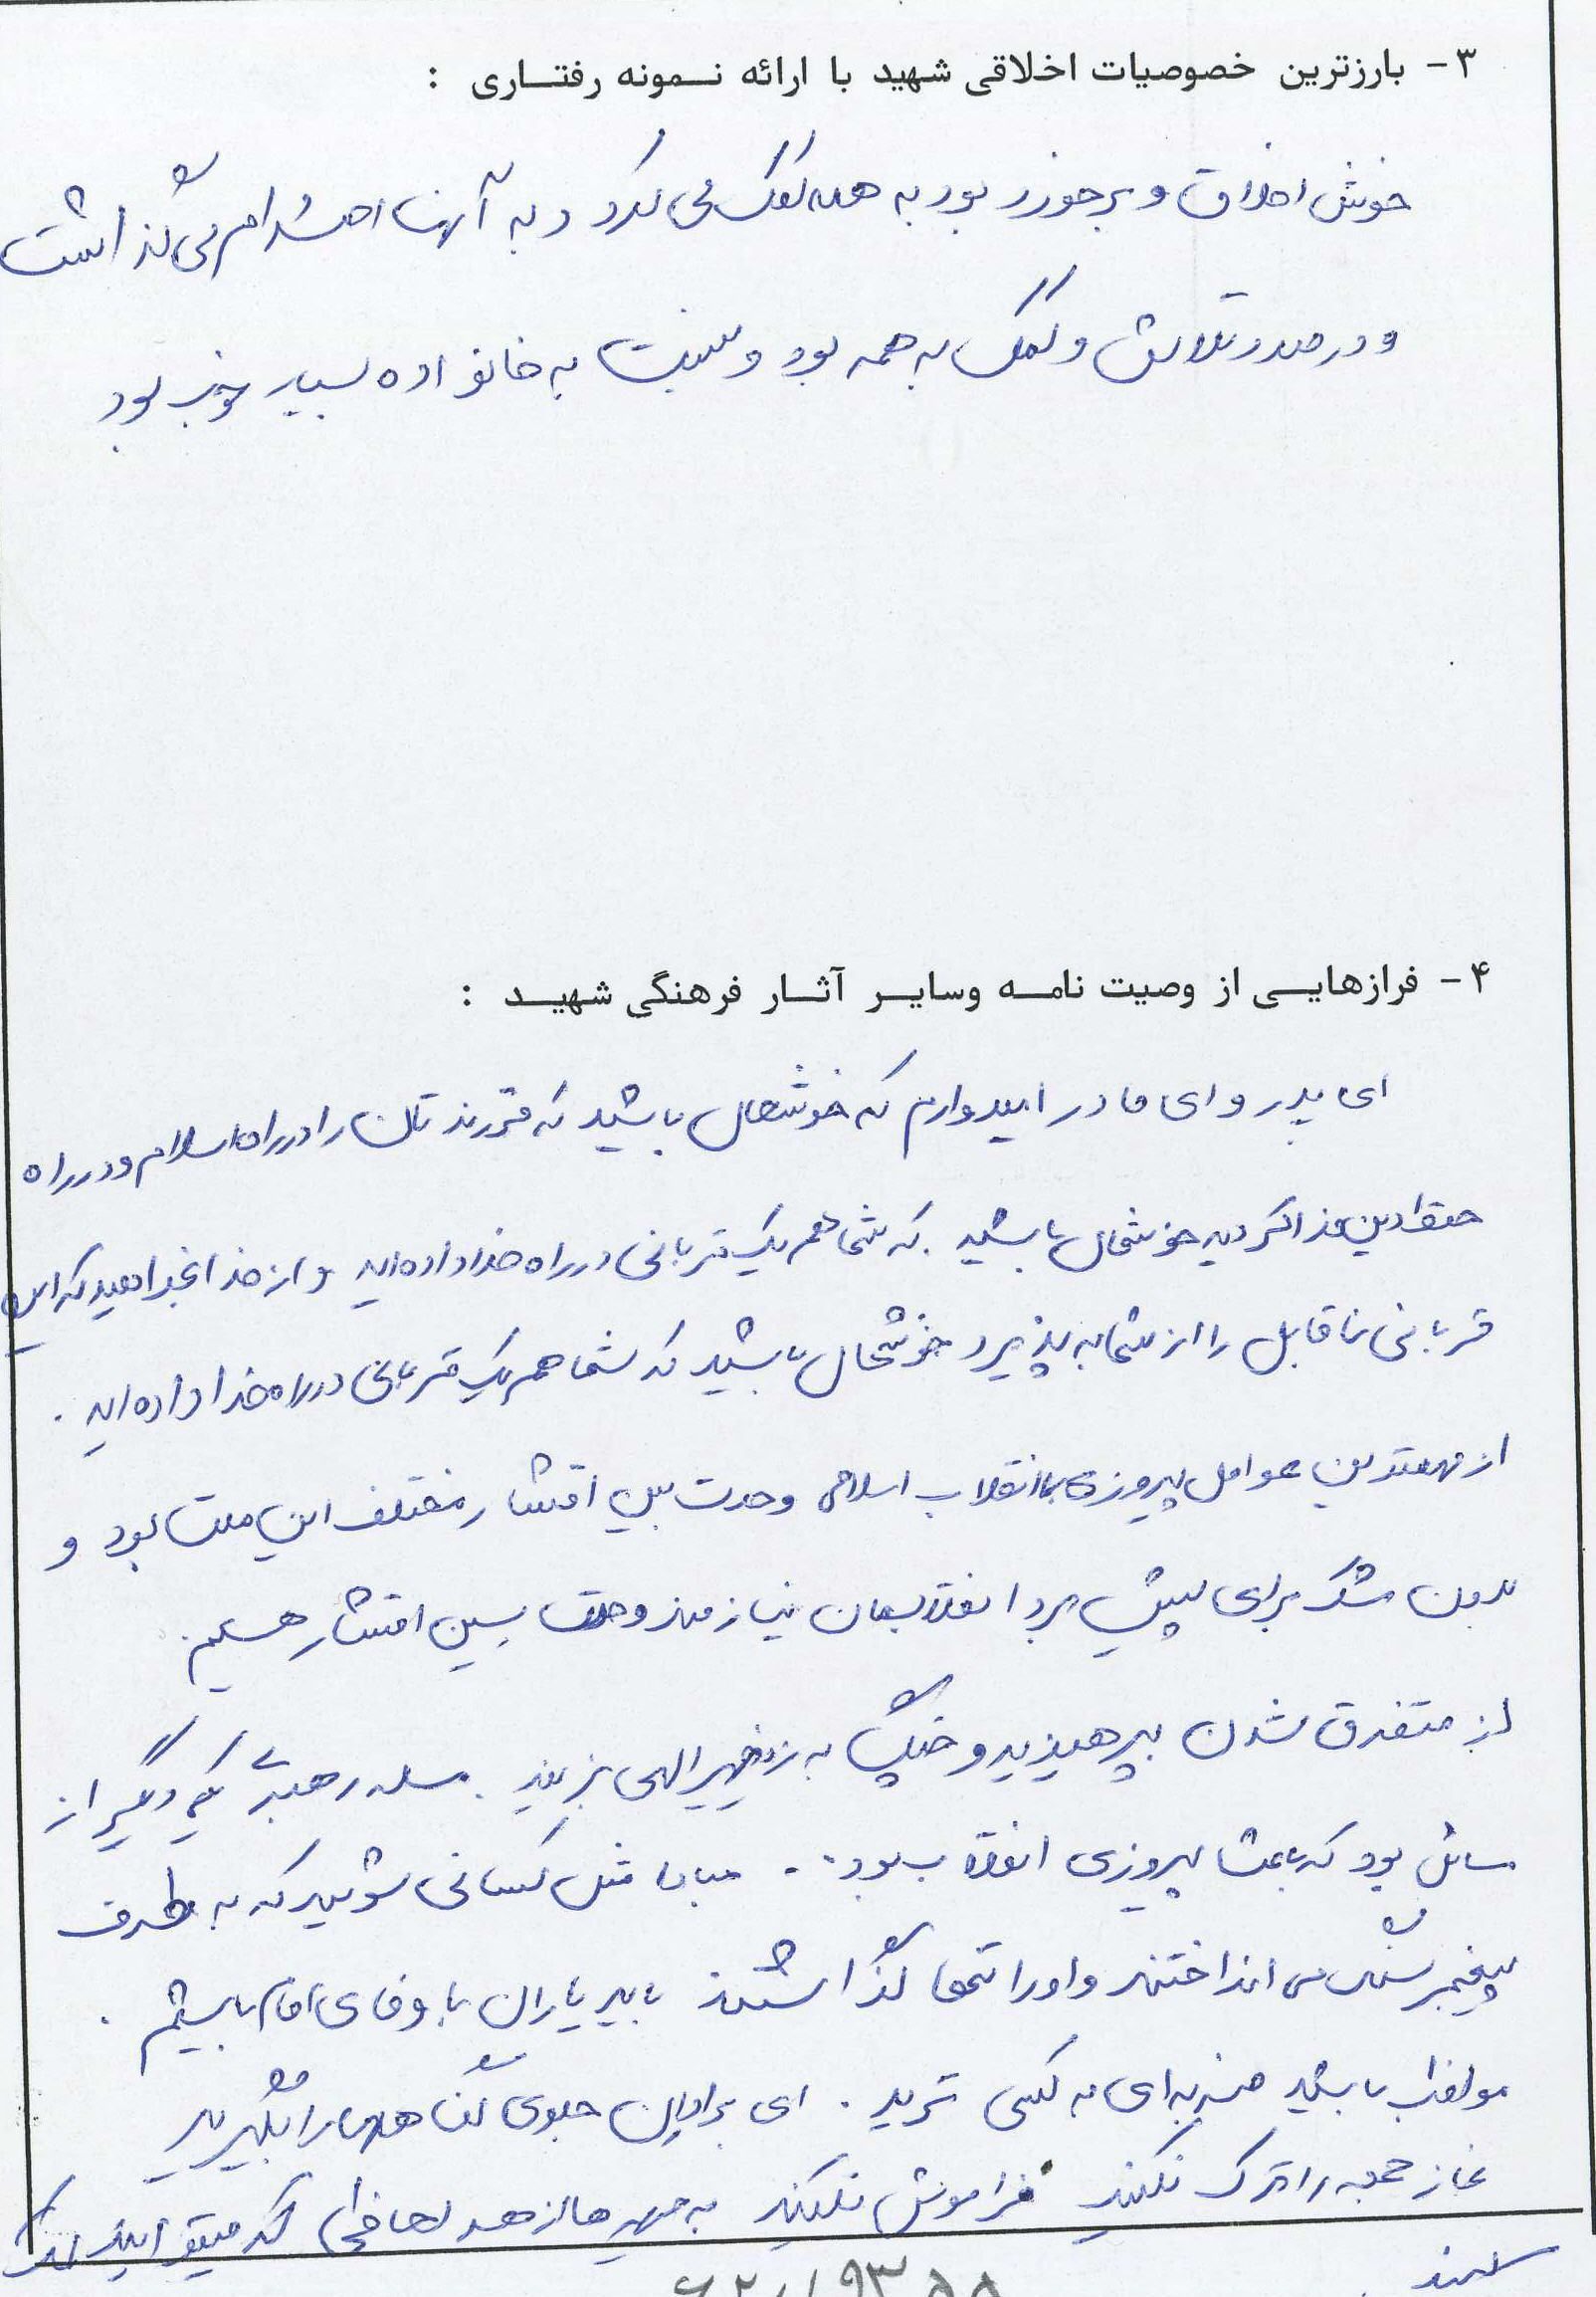 ۳- بارزترین خصوصیات اخلاقی شهید با ارائه نمونه رفتاری :
خوش اخلاق و برخورد بود به همه کمک می کرد و به آنها احترام می گذاشت
و در صدد تلاش و کمک به همه بود و نسبت به خانواده بسیار خوب بود
۴- فرازهایی از وصیت نامه وسایر آثار فرهنگی شهید :
ای پدر و ای مادر امیدوارم که خوشحال باشید که فرزندتان را در راه اسلام و در راه
خدا کردید خوشحال باشید. که شما هم یک قربانی در راه خدا داده اید و از خدا بخواهید که این
قربانی ناقابل را از شما بپذیرد خوشحال باشید که شما هم یک قربانی در راه خدا داده اید .
از مهمترین عوامل پیروزی انقلاب اسلامی وحدت بین اقشار مختلف این ملت بود و
بدون شک برای پیش برد انقلابمان نیازمند وحدت بین اقشار هستیم.
از متفرق شدن بپرهیزید و چنگ به الهی بزنید. مسئله رهبری یکی دیگر از
مسائل بود که باعث پیروزی انقلاب بود.. مبادا مثل کسانی شوید که به طرف
پیغمبر سنگ می انداختند و او را تنها گذاشتند باید یاران با وفای امام باشیم .
مواظب باشید ضربه ای به کسی نزنید . ای برادران جلوی گناهان را بگیرید
نماز جمعه را ترک نکنید فراموش نکنید به جبهه ها از هر لحاظی که میتوانید کمک
کنید